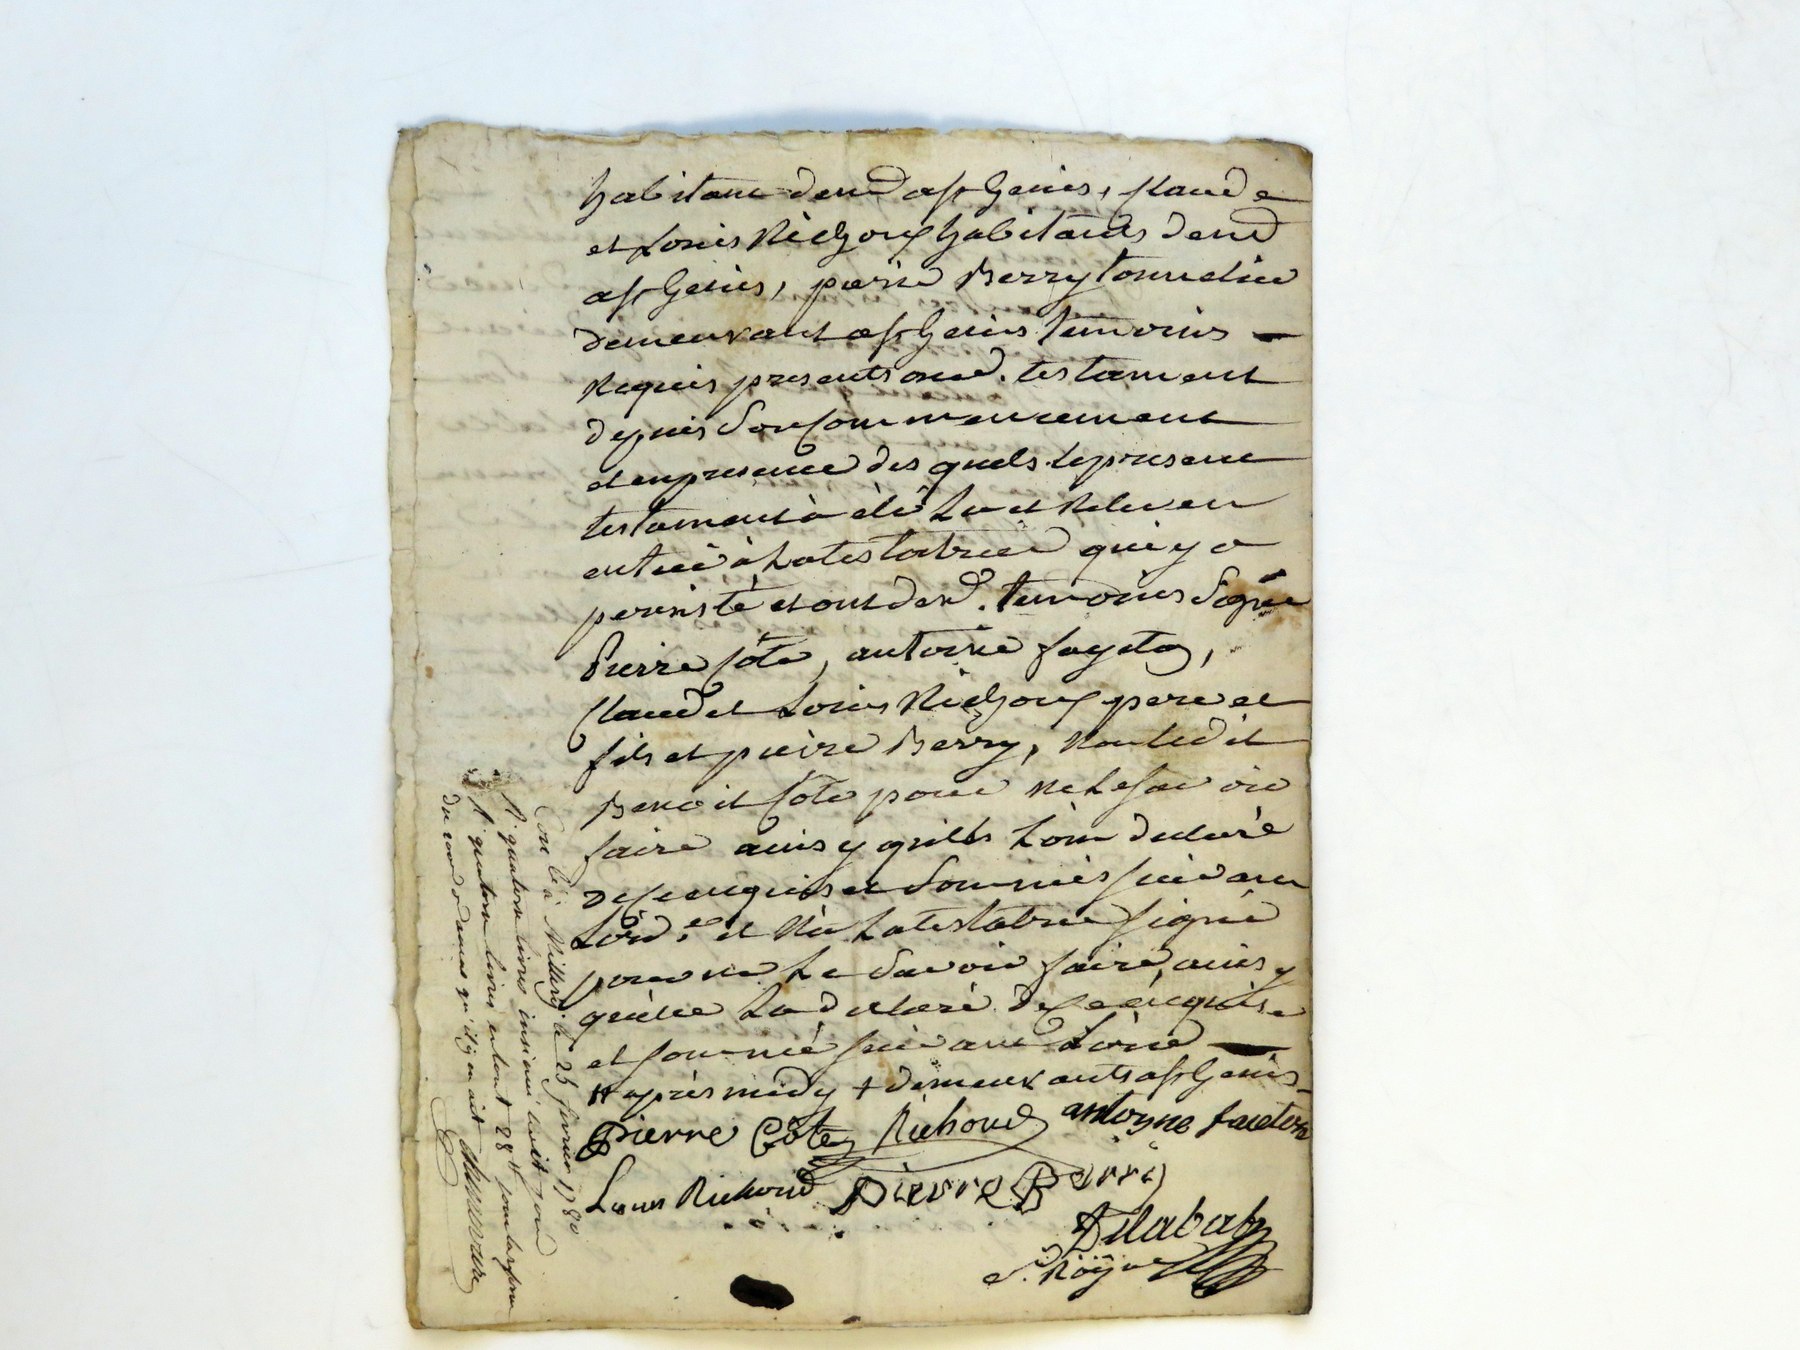 habitant dud a St Genis, Claude
et Louis Richoux habitants dud
a St Genis, pierre Berry tonnelier
demeurant a St Genis temoins
Requis presents aud. testament
depuis son commencement
et en presence des quels le present
testament à été Lu et Relu en
entier à La testatrice qui y a
persisté et ont lesd. temoins Signé
Pierre Côte, antoine fayeton,
Claude et Louis Richoux pere et
fils et pierre Berry, non ledit
Benoit Côte pour ne le sçavoir
faire ainsy qu'ils L'ont declaré
de ce enquis et Sommés suivant
L'ord.e et n'a La testatrice signé
pour ne Le Savoir faire, ainsy
qu'elle La declaré de ce enquise
et sommée suivant L'ord
apres midy + demeurants a St Genis
Pierre Côte Richoud antoyne faieton
Louis Richoud Pierre Berry
Delabat
N.re Royal
Con.lé à Millery le 25 fevrier 1780
R. quatorze livres
R. quatorze livres en tout 28 lt